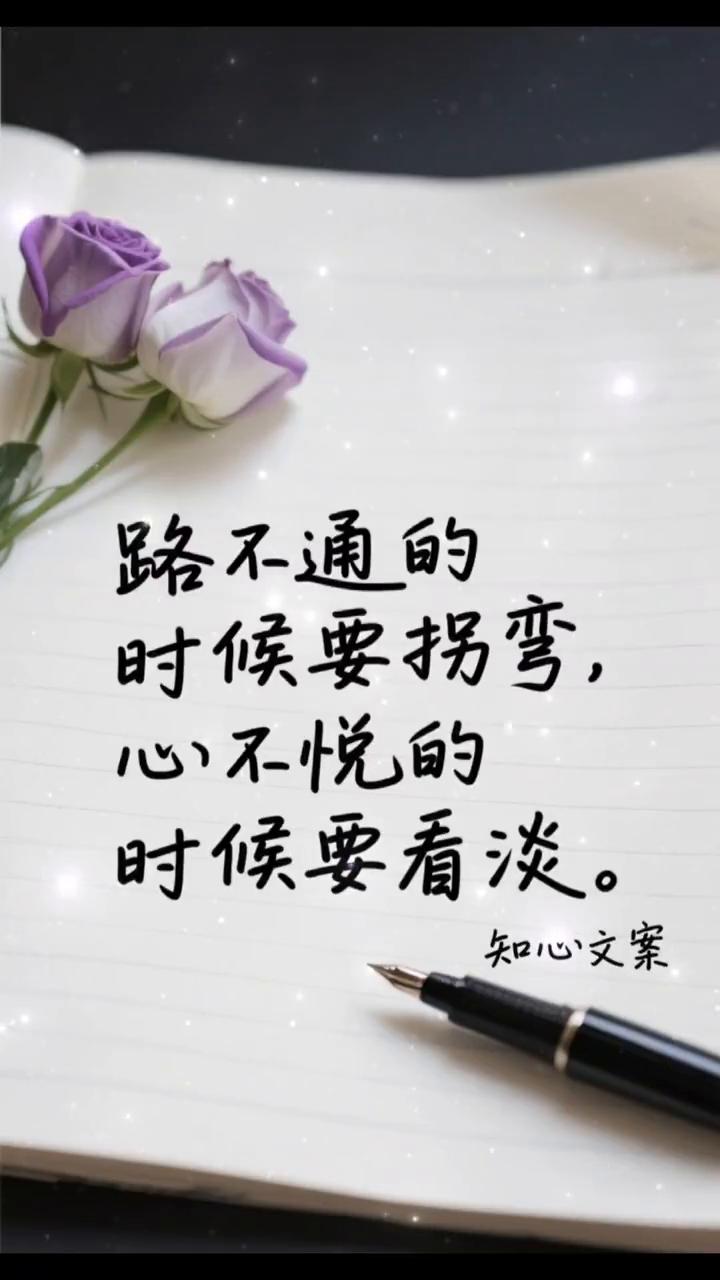 路不通的
时候要拐弯,
心不悦的
时候要看淡。
知心文案